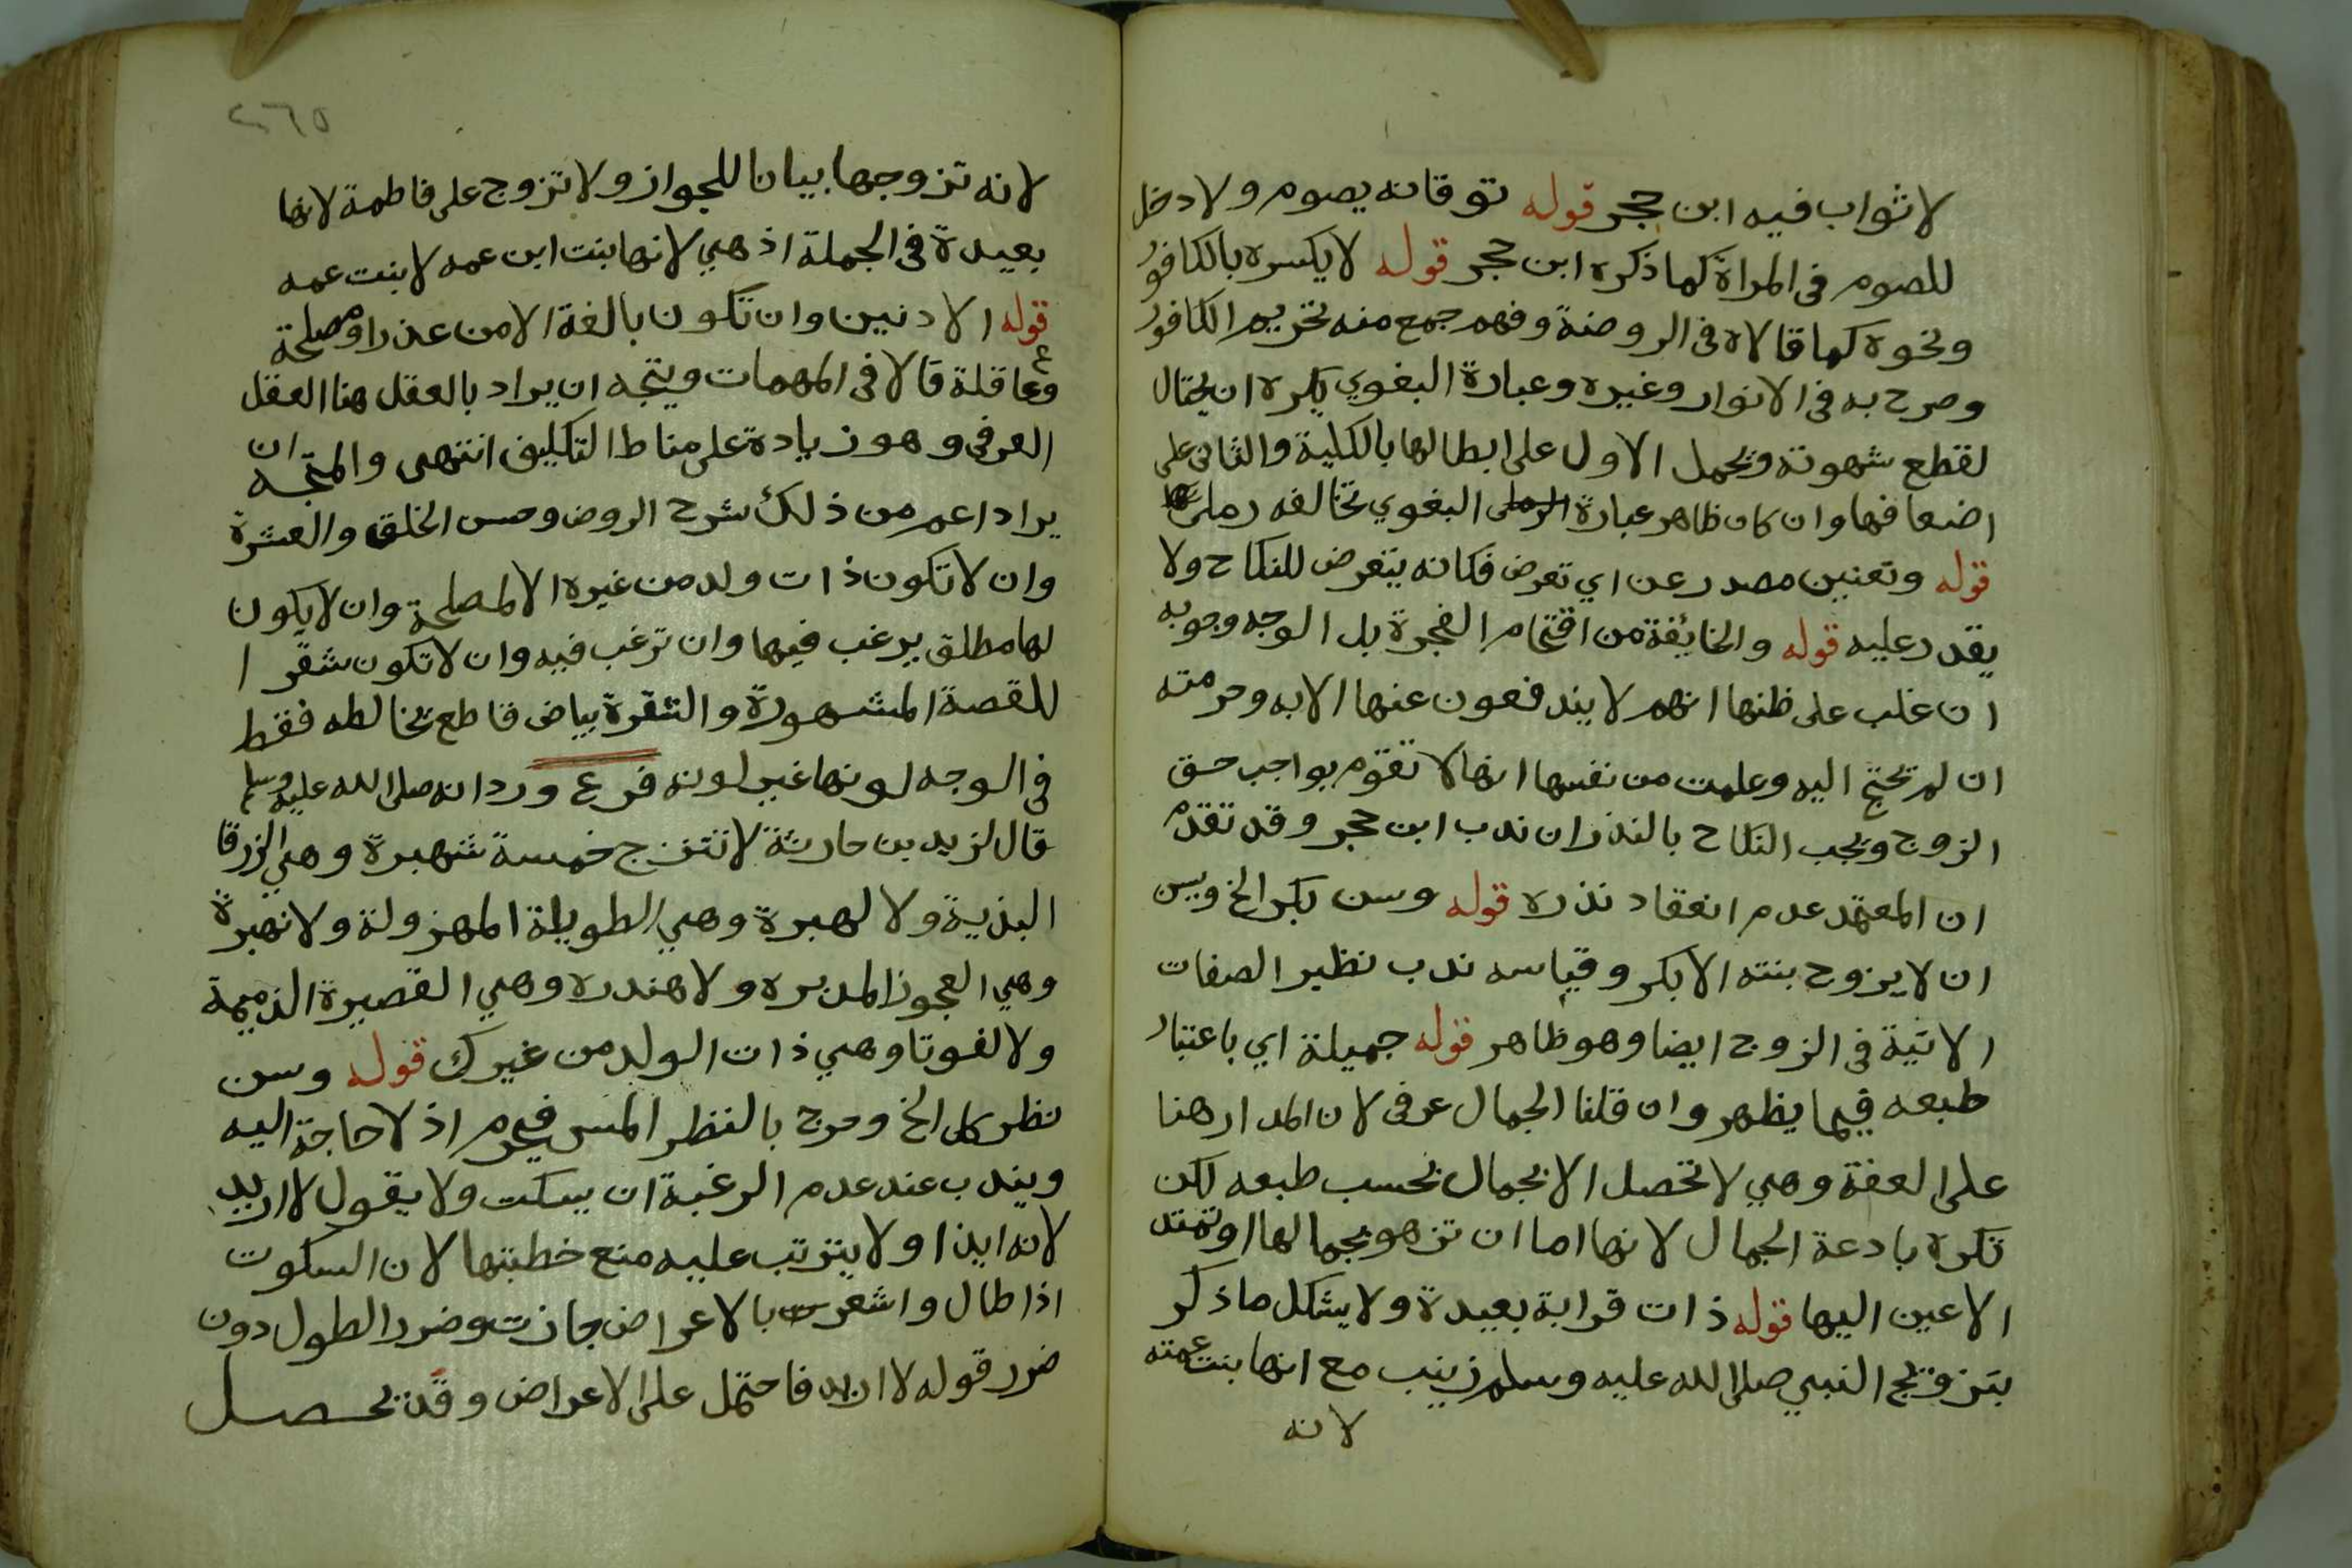 لا ثواب فيه ابن حجر قوله توقانه يصوم ولا دخل
للصوم في المراة كما ذكره ابن حجر قوله لا يكسره بالكافور
ونحوه كما قالاه في الروضة وفهم جمع منه تحريم الكافور
وصرح به في الانوار وغيره وعبارة البغوي يكره ان يحتال
لقطع شهوته ويحمل الاول على ابطالها بالكلية والثاني على
اضعافها وان كان ظاهر عبارة البغوي تخالفه رملي
قوله وتعنين مصدر عن اي تعرض فكانه يتعرض للنكاح ولا
يقدر عليه قوله والخايفة من اقتحام الفجرة بل الوجه وجوبه
ان غلب على ظنها انهم لا يندفعون عنها الا به وحرمته
ان لم تحتج اليه وعلمت من نفسها انها لا تقوم بواجب حق
الزوج ويجب النكاح بالنذر ان ندب ابن حجر وقد تقدم
ان المعتمد عدم انعقاد نذره قوله وسن بكر الخ ويسن
ان لا يزوج بنته الا بكر وقياسه ندب نظير الصفات
الاتية في الزوج ايضا وهو ظاهر قوله جميلة اي باعتبار
طبعه فيما يظهر وان قلنا الجمال عرفي لان المدار هنا
على العفة وهي لا تحصل الا بجمال بحسب طبعه لكن
تكره بادعة الجمال لانها اما ان تزهو بجمالها او تمتد
الاعين اليها قوله ذات قرابة بعيدة ولا يشكل ما ذكر
بتزويج النبي صلى الله عليه وسلم زينب مع انها بنت عمته
لانه
٢٦٥
لانه تزوجها بيانا للجواز ولا تزوج على فاطمة لانها
بعيدة في الجملة اذ هي لانها بنت ابن عمه لا بنت عمه
قوله الادنين وان تكون بالغة الا من عذر او مصلحة
وعاقلة قالا في المهمات ويتجه ان يراد بالعقل هنا العقل
العرفي وهو زيادة على مناط التكليف انتهى والمتجه ان
يراد اعم من ذلك شرح الروض وحسن الخلق والعشرة
وان لا تكون ذات ولد من غيره الا لمصلحة وان لا يكون
لها مطلق يرغب فيها وان ترغب فيه وان لا تكون شقرا
للقصة المشهورة والشقرة بياض قاطع تخالطه فقط
في الوجه لونها غير لونه فرع ورد انه صلى الله عليه وسلم
قال لزيد بن حارثة لا تتزج خمسة شهبرة وهي الزرقا
البذية ولا لهبرة وهي الطويلة المهزولة ولا نهبرة
وهي العجوز المدبره ولا هندره وهي القصيرة الذميمة
ولا لفوتا وهي ذات الولد من غيرك قوله وسن
نظر كل الخ وخرج بالنظر المس فيحرم اذ لا حاجة اليه
ويندب عند عدم الرغبة ان يسكت ولا يقول لا اريد
لانه ايذا ولا يترتب عليه منع خطبتها لان السكوت
اذا طال واشعرت بالاعراض جازت وضرر الطول دون
ضرر قوله لا اريد فاحتمل على الاعراض وقد يحصل